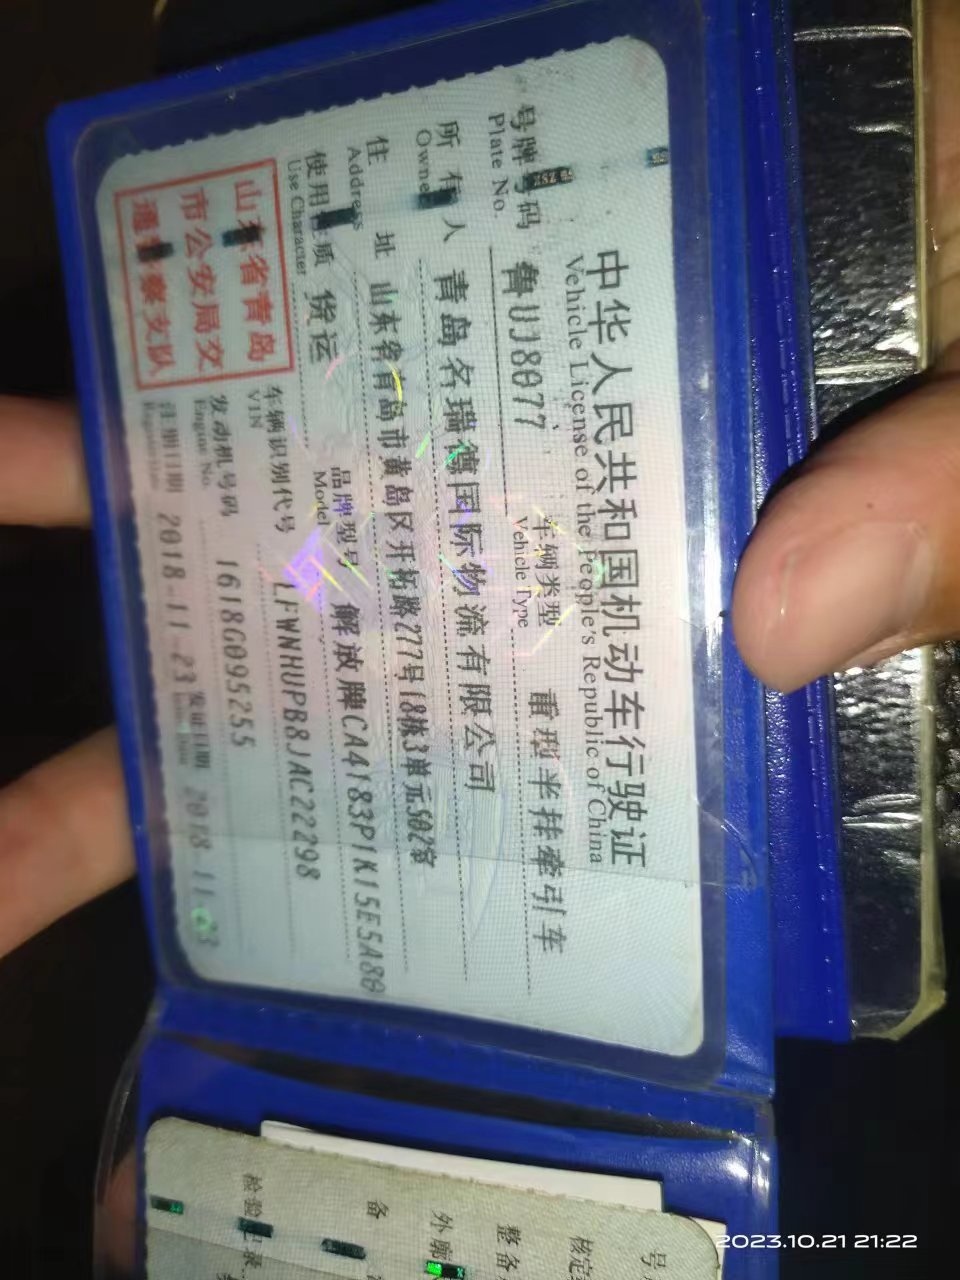 中华人民共和国机动车行驶证
Vehicle License of the People's Republic of China
号牌号码 鲁UJ8077 车辆类型 重型半挂牵引车
Plate No. Vehicle Type
所有人 青岛名瑞德国际物流有限公司
Owner
住址 山东省青岛市黄岛区开拓路277号18栋3单元502室
Address
使用性质 货运 品牌型号 解放牌CA4183P1K15E5A80
Use Character Model
山东省青岛
市公安局交
通警察支队
车辆识别代号 LFWNHUPB8JAC22298
VIN
发动机号码 1618G095255
Engine No.
注册日期 2018-11-23 发证日期 2018-11-23
号
核定
整备
外廓
备
检验记录
2023.10.21 21:22